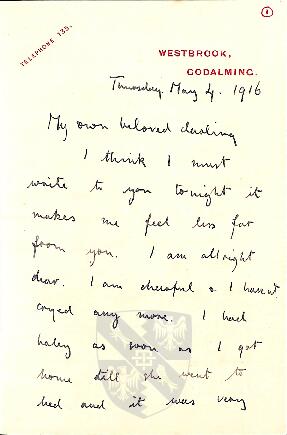 1
TELEPHONE 135.
WESTBROOK,
GODALMING.
Thursday May 4. 1916
My own beloved darling
I think I must
write to you tonight it
makes me feel less far
from you. I am allright
dear. I am cheerful & I havent
cryed any more. I had
baby as soon as I got
home till she went to
bed and it was very